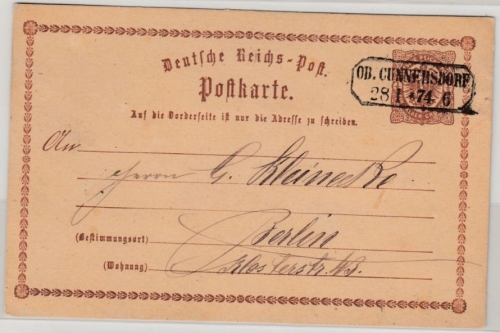 Deutsche Reichs-Post.
Postkarte.
OB. CUNNERSDORF
28 I 74 6
Auf die Vorderseite ist nur die Adresse zu schreiben.
An
Herrn G. Kleinecke
(Bestimmungsort) Berlin
(Wohnung) Klosterstr.